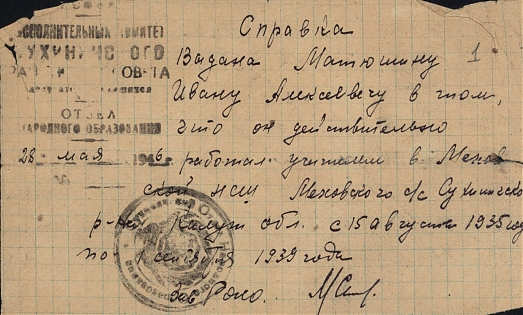 Справка
1
ИСПОЛНИТЕЛЬНЫЙ КОМИТЕТ
СУХИНИЧСКОГО
СОВЕТА
ОТДЕЛ
НАРОДНОГО ОБРАЗОВАНИЯ
28 мая 1946
Выдана Матюшину
Ивану Алексеевичу в том,
что он действительно
работал учителем в Мехов
ской нсш Меховского с/с Сухиническо
р-на Калуж обл. с 15 августа 1935 год
по 1 сентября 1939 года
Зав Роно.